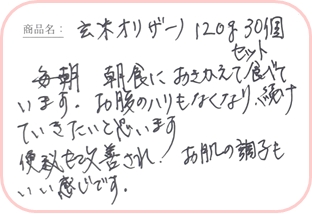 商品名: 玄米オリザーノ 120g 30個
セット
毎朝 朝食におきかえて食べて
います。お腹のハリもなくなり、続け
ていきたいと思います
便秘も改善され! お肌の調子も
いい感じです。